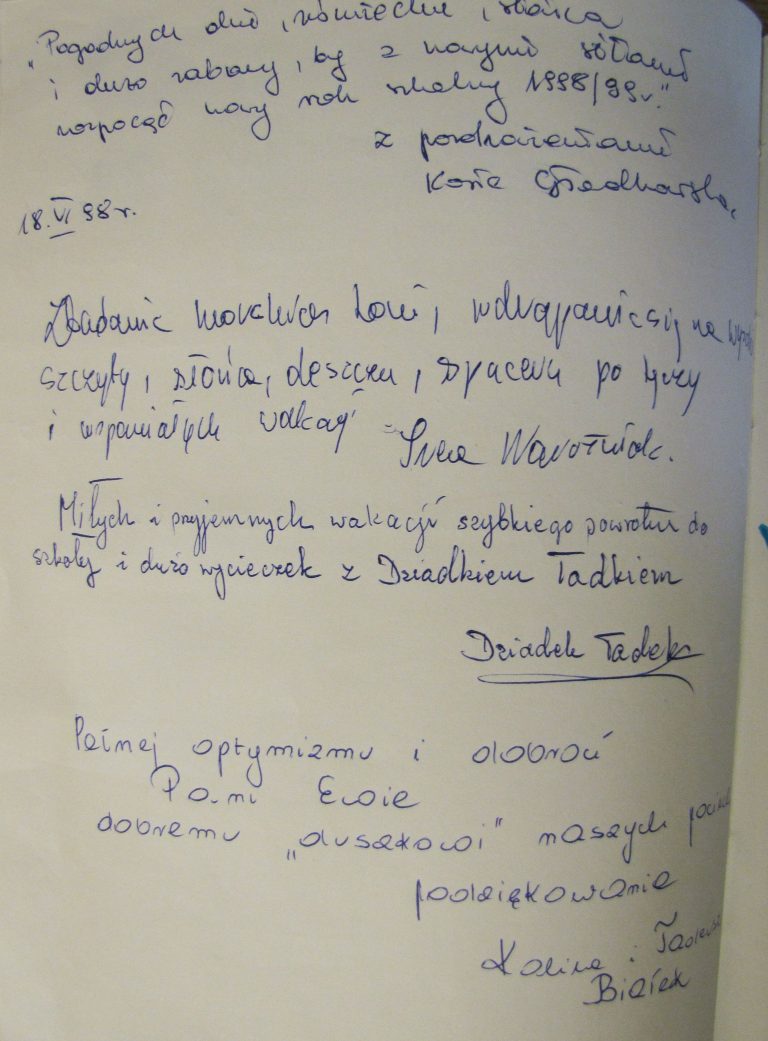 "Pogodnych dni, uśmiechu, słońca
i dużo zabawy, by z nowymi siłami
rozpocząć nowy rok szkolny 1998/99r."
z pozdrowieniami
Kasia
18.VI 98r.
Zbadania morskiej toni, wdrapania się na
szczyty, słońca, deszczu, spaceru po tęczy
i wspaniałych wakacji
Miłych i przyjemnych wakacji szybkiego powrotu do
szkoły i dużo wycieczek z Dziadkiem Tadkiem
Dziadek Tadek
Pełnej optymizmu i dobroci
Pani Ewie
dobremu „duszkowi" naszych
podziękowania
Kalina i
Białek